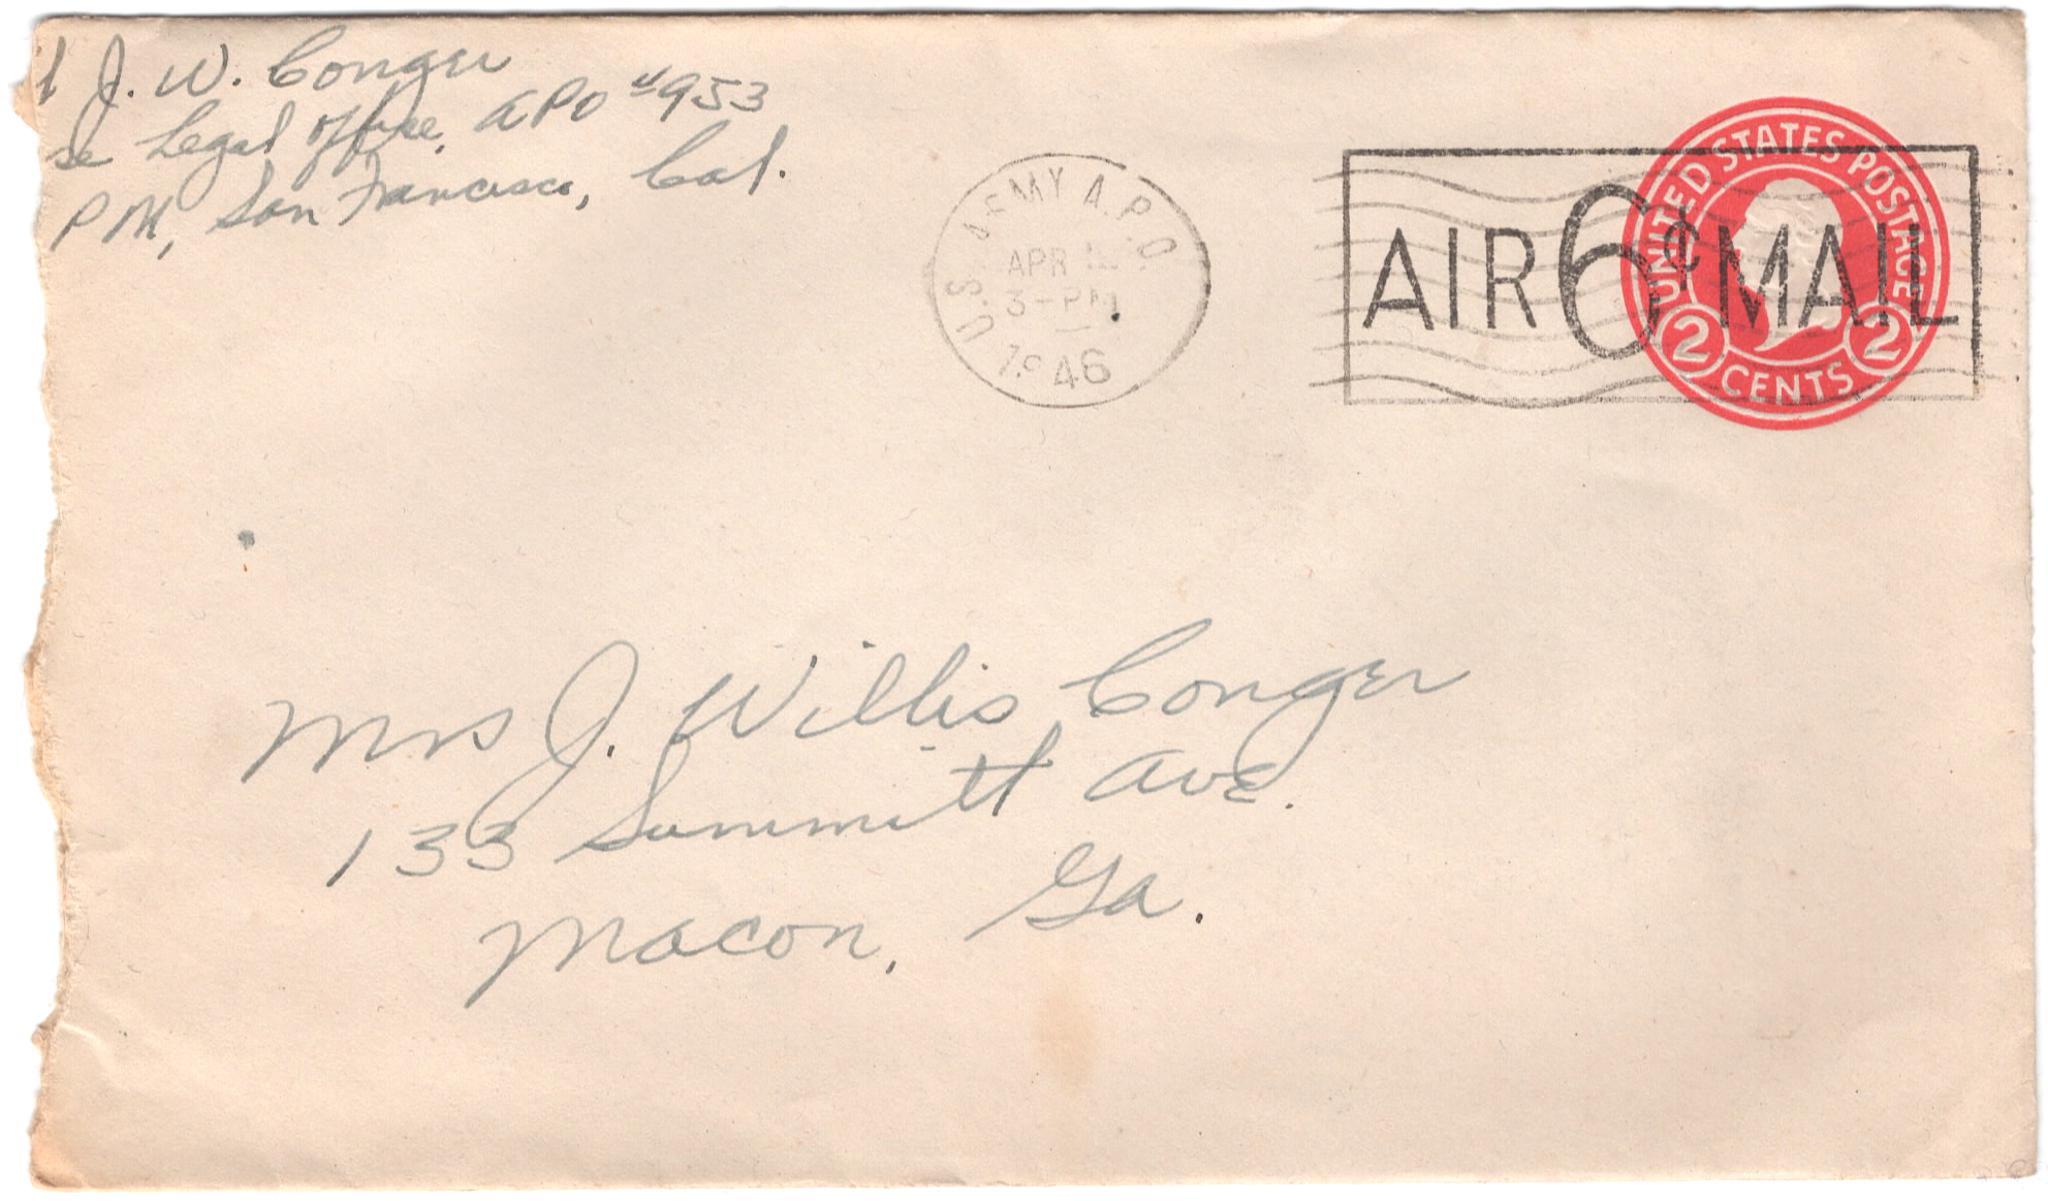 J. W. Conger
se Legal Office, APO #953
PM, San Francisco, Cal.
U.S. ARMY A.P.O.
APR
3-PM
1946
AIR 6¢ MAIL
UNITED STATES POSTAGE
2 CENTS 2
Mrs J. Willis Conger
133 Summitt Ave.
Macon, Ga.